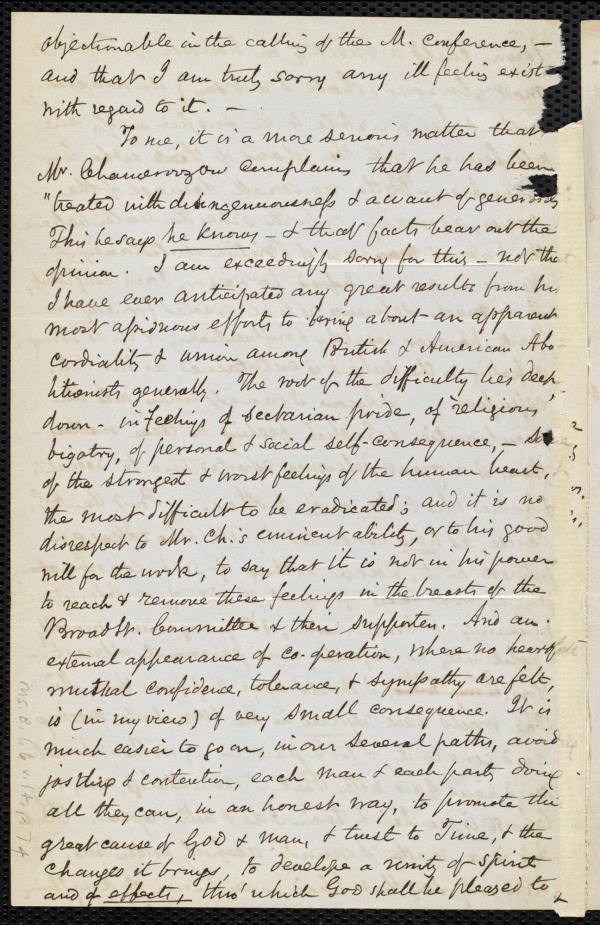 objectionable in the calling of the M. Conference, —
and that I am truly sorry any ill feeling exists
with regard to it. —
To me, it is a more serious matter that
Mr. Chamerovzow complains that he has been
"treated with disingenuousness & a want of generosity
This he says he knows — & that facts bear out the
opinion. I am exceedingly sorry for this — not that
I have ever anticipated any great results from his
most assiduous efforts to bring about an apparent
cordiality & union among British & American Abo
litionists generally. The root of the difficulty lies deep
down — in feelings of Sectarian pride, of religious
bigotry, of personal & social self-consequence, — some
of the strongest & worst feelings of the human heart,
the most difficult to be eradicated; and it is no
disrespect to Mr. Ch.'s eminent ability, or to his good
will for the work, to say that it is not in his power
to reach & remove these feelings in the breasts of the
Broad St. Committee & their supporters. And an
external appearance of co-operation, where no heartfelt
mutual confidence, tolerance, & sympathy are felt,
is (in my view) of very small consequence. It is
much easier to go on, in our several paths, avoid
jostling & contention, each man & each party doing
all they can, in an honest way, to promote the
great cause of God & man, & trust to Time, & the
changes it brings, to develope a unity of spirit
and of effects, thro' which God shall be pleased to
MS.B.1.6 v.14 p.74